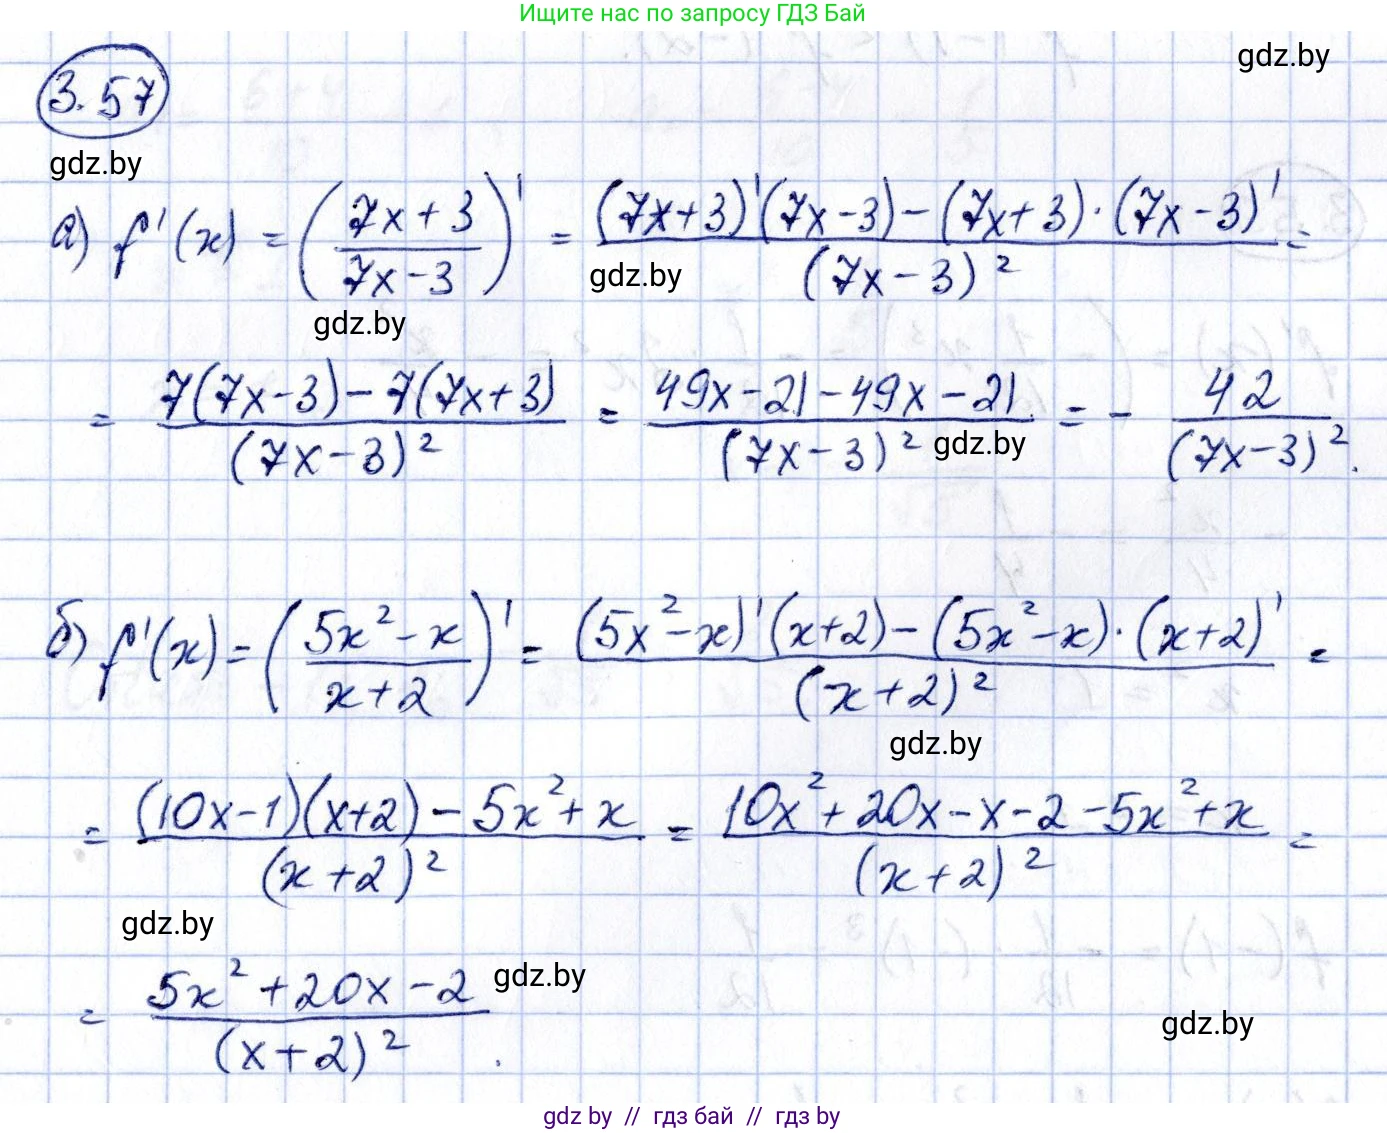 Ищите нас по запросу ГДЗ Бай
gdz.by
3.57
gdz.by
а) f'(x) = ((7x+3)/(7x-3))' = ((7x+3)'(7x-3)-(7x+3)·(7x-3)')/(7x-3)² =
gdz.by
gdz.by
= (7(7x-3)-7(7x+3))/(7x-3)² = (49x-21-49x-21)/(7x-3)² = - 42/(7x-3)².
gdz.by
б) f'(x) = ((5x²-x)/(x+2))' = ((5x²-x)'(x+2)-(5x²-x)·(x+2)')/(x+2)² =
gdz.by
= ((10x-1)(x+2)-5x²+x)/(x+2)² = (10x²+20x-x-2-5x²+x)/(x+2)² =
gdz.by
= (5x²+20x-2)/(x+2)².
gdz.by
gdz.by
gdz by // гдз бай // гдз by